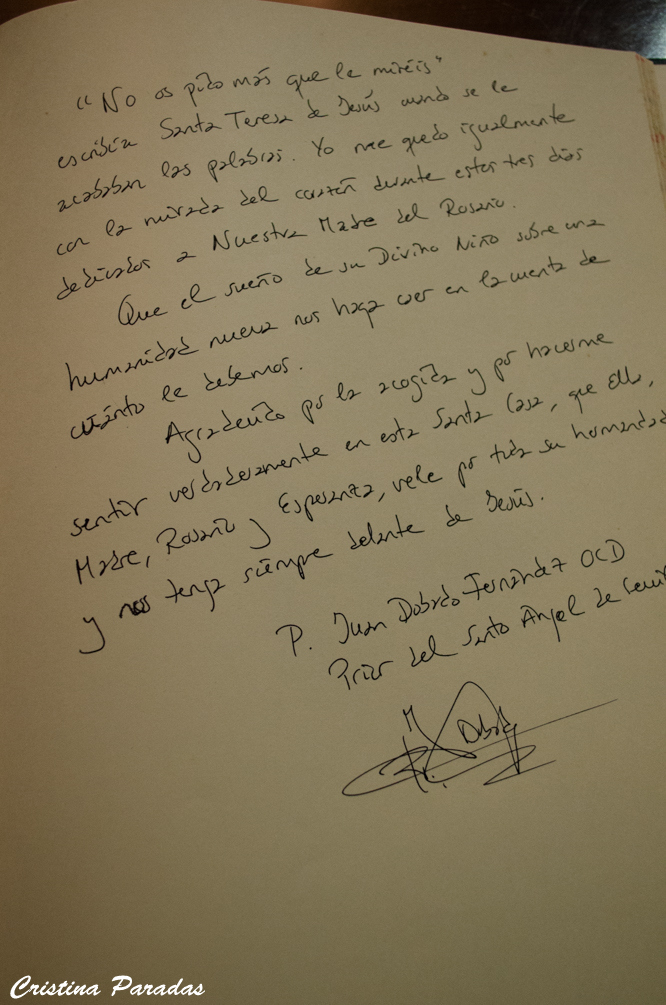 “No os pido más que le miréis”
escribía Santa Teresa de Jesús cuando se le
acababan las palabras. Yo me quedo igualmente
con la mirada del corazón durante estos tres días
dedicados a Nuestra Madre del Rosario.
Que el sueño de su Divino Niño sobre una
humanidad nueva nos haga caer en la cuenta de
cuánto le debemos.
Agradecido por la acogida y por hacerme
sentir verdaderamente en esta Santa Casa, que Ella,
Madre, Rosario y Esperanza, vele por toda su hermandad
y nos tenga siempre delante de Jesús.
P. Juan Dobado Fernández OCD
Prior del Santo Ángel de Sevil
Dobado
Cristina Paradas